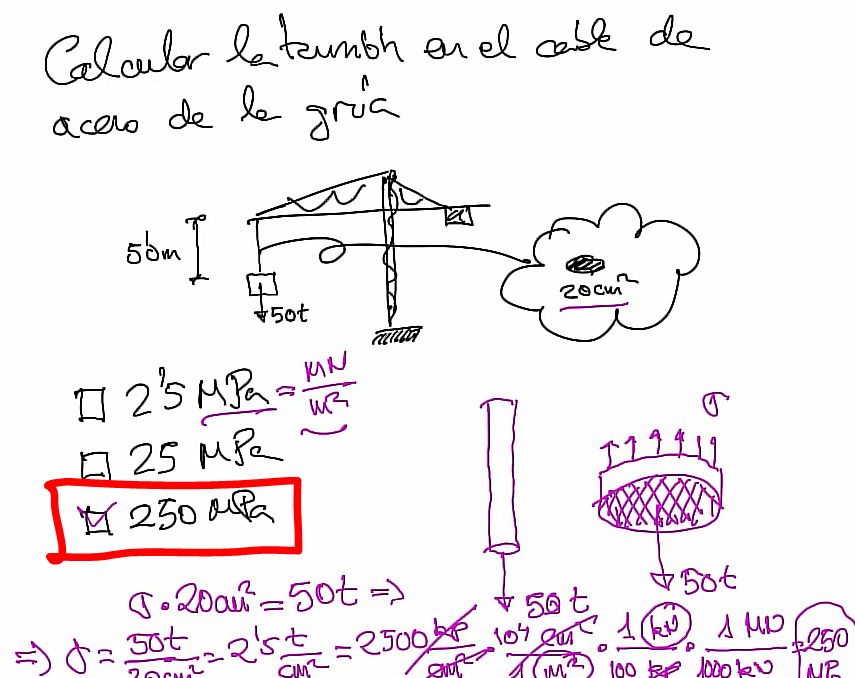 Calcular la tensión en el cable de
acero de la grúa
50m
20cm²
50t
2'5 MPa = MN/m²
25 MPa
250 MPa
σ
50t
σ·20cm² = 50t ⇒
50t
⇒ σ = 50t/20cm² = 2'5 t/cm² = 2500 kp/cm² · 10⁴ cm²/1 m² · 1 kN/100 kp · 1 MN/1000 kN = 250 MPa